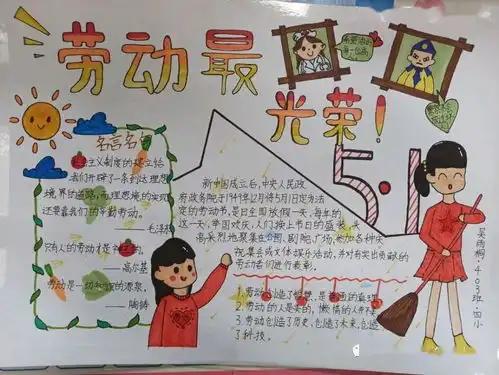 劳动最
光荣!
5.1
名言名句
社会主义制度的建立给
我们开辟了一条到达理想
境界的道路,而理想境界的实现
还要靠我们的辛勤劳动。
——毛泽东
只有人的劳动才是神圣的。
——高尔基
劳动是一切知识的源泉。
——陶铸
新中国成立后,中央人民政
府政务院于1949年12月将5月1日定为法
定的劳动节,是日全国放假一天。每年的
这一天,举国欢庆,人们换上节日的盛装,兴
高采烈地聚集在公园、剧院、广场,参加各种庆
祝集会或文体娱乐活动,并对有突出贡献的
劳动者们进行表彰。
1.劳动创造了
2.劳动的人是美的,懒惰的人
3.劳动创造了历史,创造了未来,创造
了科技。
吴雨桐 403班 四小